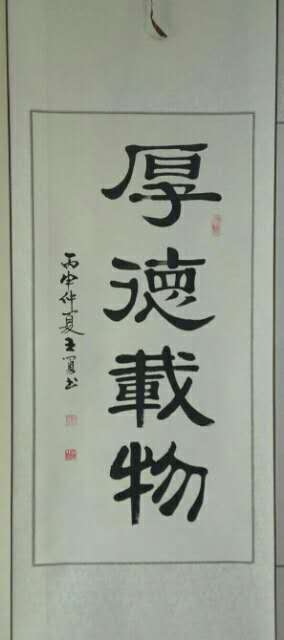 厚德載物
丙申仲夏王